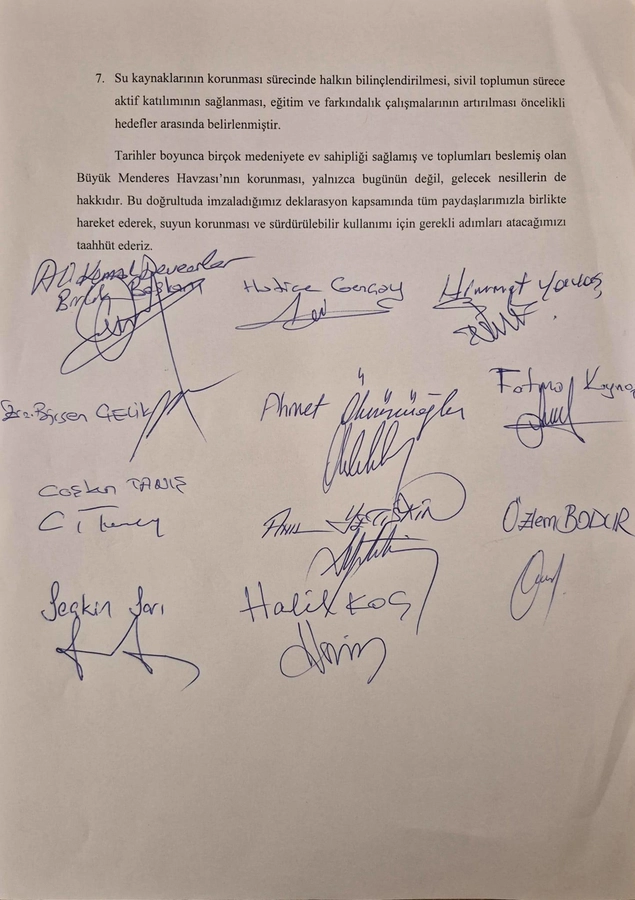 7. Su kaynaklarının korunması sürecinde halkın bilinçlendirilmesi, sivil toplumun sürece
aktif katılımının sağlanması, eğitim ve farkındalık çalışmalarının artırılması öncelikli
hedefler arasında belirlenmiştir.
Tarihler boyunca birçok medeniyete ev sahipliği sağlamış ve toplumları beslemiş olan
Büyük Menderes Havzası’nın korunması, yalnızca bugünün değil, gelecek nesillerin de
hakkıdır. Bu doğrultuda imzaladığımız deklarasyon kapsamında tüm paydaşlarımızla birlikte
hareket ederek, suyun korunması ve sürdürülebilir kullanımı için gerekli adımları atacağımızı
taahhüt ederiz.
Ali Kemal Deveciler
Birlik Başkanı
Hatice Gençay
Himmet Yavaş
Birsen ÇELİK
Ahmet
Fatma Kayna
Coşkun TANIŞ
Anıl YETİŞKİN
Özlem BODUR
Seçkin Sarı
Halil KOÇ